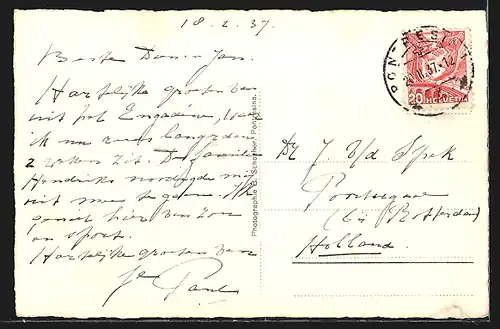 18.2.37.
Beste Dom. Jan.
Hartelijke groeten
uit het Engadin, waar
ik nu reeds
2 weken zit. De familie
Hendriks noodigde mij
uit mee te gaan. Ik
geniet hier van zon
en sport.
Hartelijke groeten van
je Paul
Photographie B. Schocher, Pontresina.
PONTRESINA
20 HELVETIA
Dr J. v/d Spek
Poortugaal
(bij Rotterdam)
Holland.